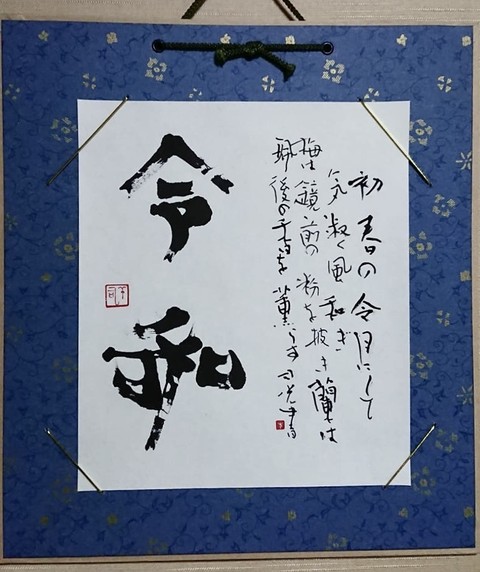 初春の令月にして
気淑く風和ぎ
梅は鏡前の粉を披き蘭は
珮後の香を薫らす
令和